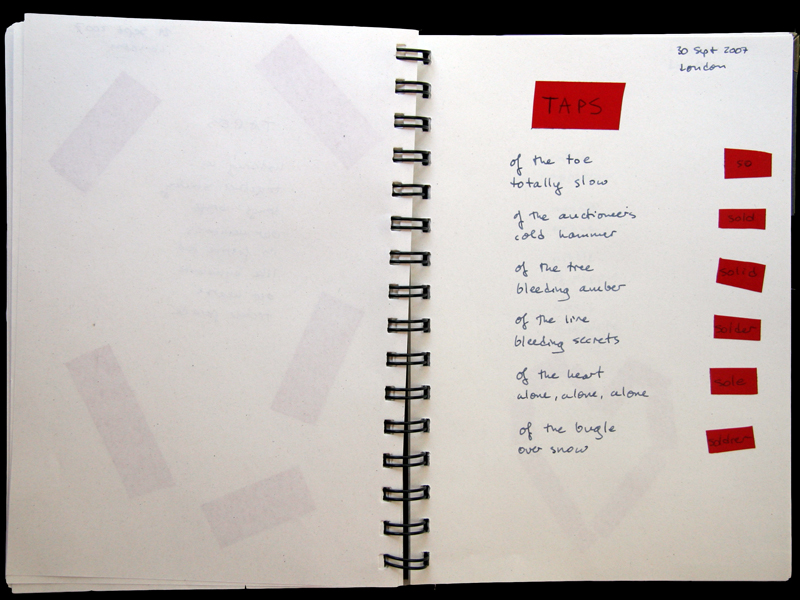 30 Sept 2007
London
TAPS
of the toe
totally slow
so
of the auctioneer's
cold hammer
sold
of the tree
bleeding amber
solid
of the line
bleeding secrets
solder
of the heart
alone, alone, alone
sole
of the bugle
over snow
soldier